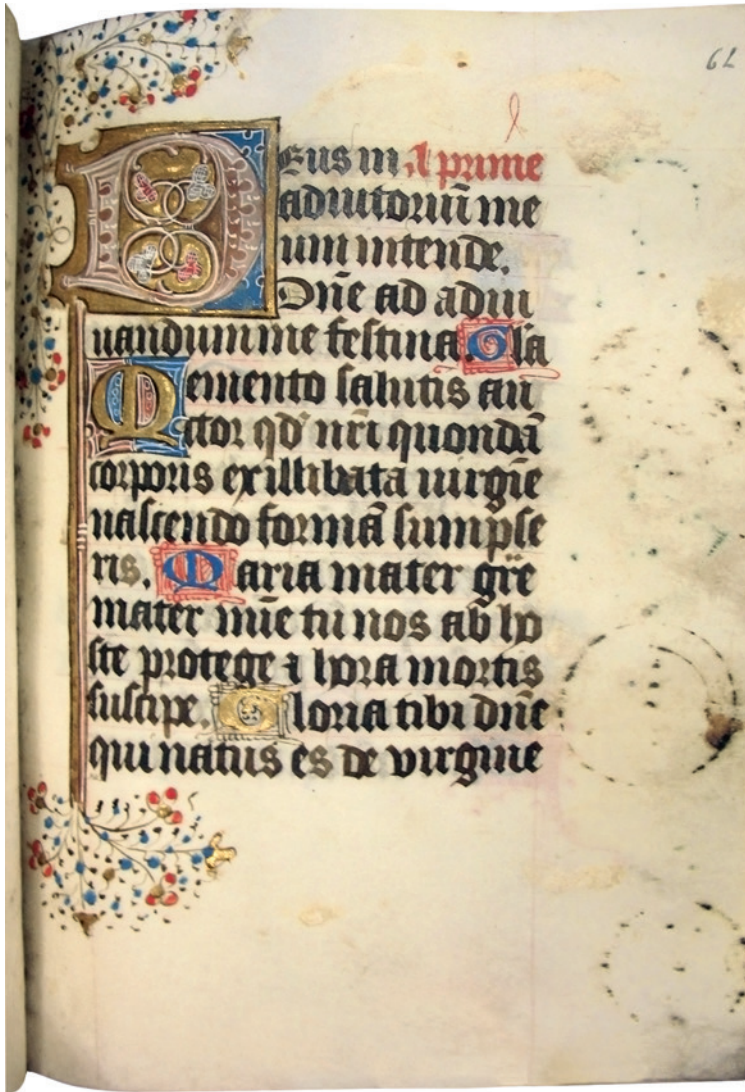 62
Deus in A prime
adiutoriũ me
um intende.
Dñe ad adiu
uandum me festina Gl̃a
Memento salutis au
ctor qd' nr̃i quondã
corporis ex illibata uirgĩe
nascendo formã sumpse
ris. Maria mater gr̃e
mater mĩe tu nos ab ho
ste protege ⁊ hora mortis
suscipe. Gloria tibi dñe
qui natus es de virgine